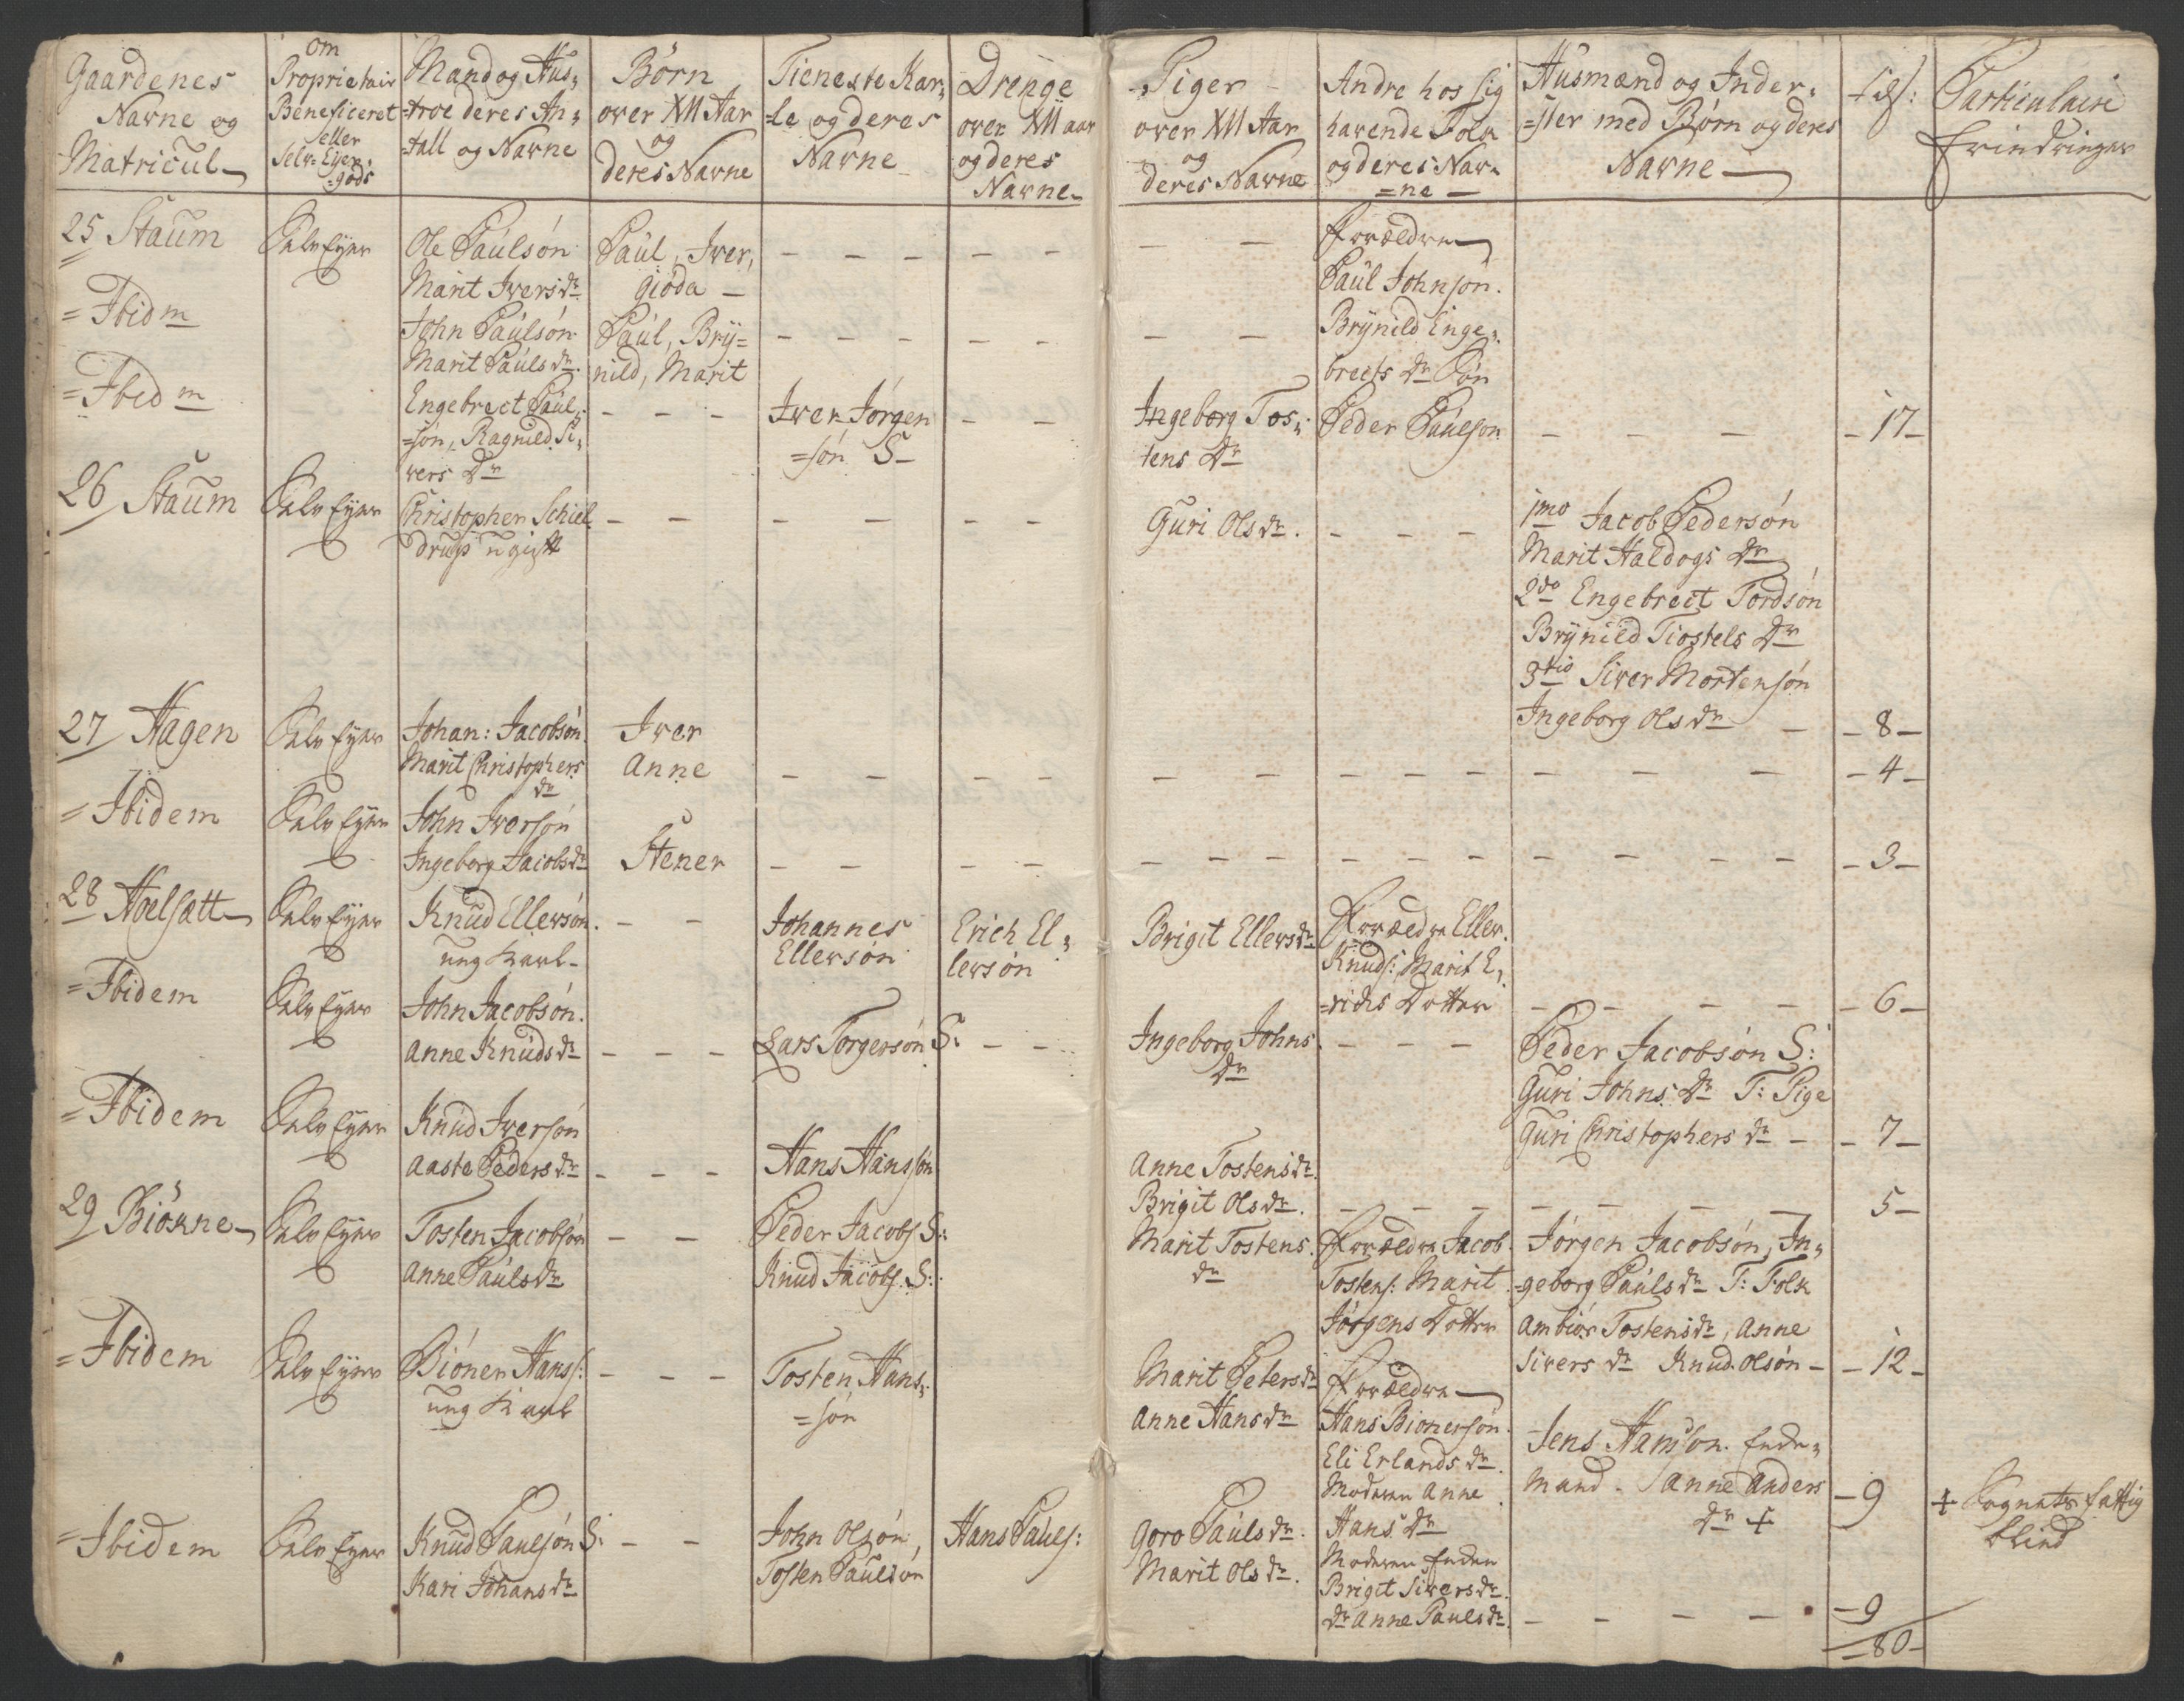 Gaardenes
Navne og
Matricul
om
Proprietair
Beneficeret
eller
Selv-Eyer-
gods
Mand og Hus-
=troe deres An-
=tall og Navne
Børn
over XII Aar
og
deres Navne
Tieneste Kar-
=le og deres
Navne
Drenge
over XII aar
og deres
Navne
Piger
over XII Aar
og
deres Navne
Andre hos sig
havende Folk
og deres Nav-
=ne
Husmænd og Inder-
=ster med Børn og deres
Navne
Particulaire
Erindringer
25 Staum
Selv Eyer
Ole Paulsøn
Marit Ivers dr
Paul, Iver,
Gióda
Forældre
Paul Johnsøn.
=Ibidm
John Paulsøn
Marit Pauls dr.
Paul, Bry=
nild, Marit
Brynild Enge-
brects Dr Søn
=Ibidm
Engebrect Paul-
=søn, Ragnild Si-
vers Dr
Iver Jørgen
=søn S
Ingeborg Tos-
tens Dr
Peder Paulson
17
26 Staum
Selv Eyer
Christopher Schiel
drup ugift
Guri Ols dr.
1mo Jacob Pedersøn
Marit Haldogs Dr
2do Engebrect Tordsøn
Brynild Tiostels Dr
3tio Siver Mortensøn
Ingeborg Ols dr
8
27 Hagen
Selv Eyer
Johan: Jacobsøn
Marit Christophers
dr
Iver
Anne
4
=Ibidem
Selv Eyer
John Iversøn
Ingeborg Jacobs dr
Stener
3
28 Hoelsætt
Selv Eyer
Knud Ellersøn.
ung Karl
Johannes
Ellersøn
Erich El-
lersøn
Brigit Ellers dr
Forældre Eller
Knuds: Marit E-
=richs Dotter
6
=Ibidem
Selv Eyer
John Jacobsøn.
Anne Knuds dr
Lars Torgersøn S:
Ingeborg Johns
Dr
Peder Jacobsøn S:
Guri Johns Dr T: Pige
Guri Christophers dr
7
=Ibidem
Selv Eyer
Knud Iversøn
Aaste Peders dr
Hans Hanssøn
Anne Tostens dr.
Brigit Ols dr.
5
29 Biökne
Selv Eyer
Tosten Jacobsøn
Anne Pauls dr
Peder Jacobs S:
Knud Jacobs. S:
Marit Tostens
dr
Forældre Jacob
Tostens: Marit
Jørgens Dotter
Jørgen Jacobsøn, In-
=geborg Pauls dr T: Folk
Ambiør Tostens dr, Anne
Sivers dr Knud Olsøn
12
=Ibidem
Selv Eyer
Biöner Hanss:
ung Karl
Tosten Hans-
=søn
Marit Peters dr
Anne Hans dr
Forældre
Hans Bionersøn
Eli Erlands dr.
Moderen Anne
Hans Dr
Jens Hansøn. Enke-
Mand. Anne Anders
dr +
9
+ Sognets fattig
blind
=Ibidem
Selv Eyer
Knud Paulsøn S:
Kari Johans dr
John Olsøn,
Tosten Paulsøn
Hans Pauls:
Goro Pauls dr.
Marit Ols dr.
Moderen Enken
Brigit Sivers dr.
Dr Anne Pauls dr.
9
=80